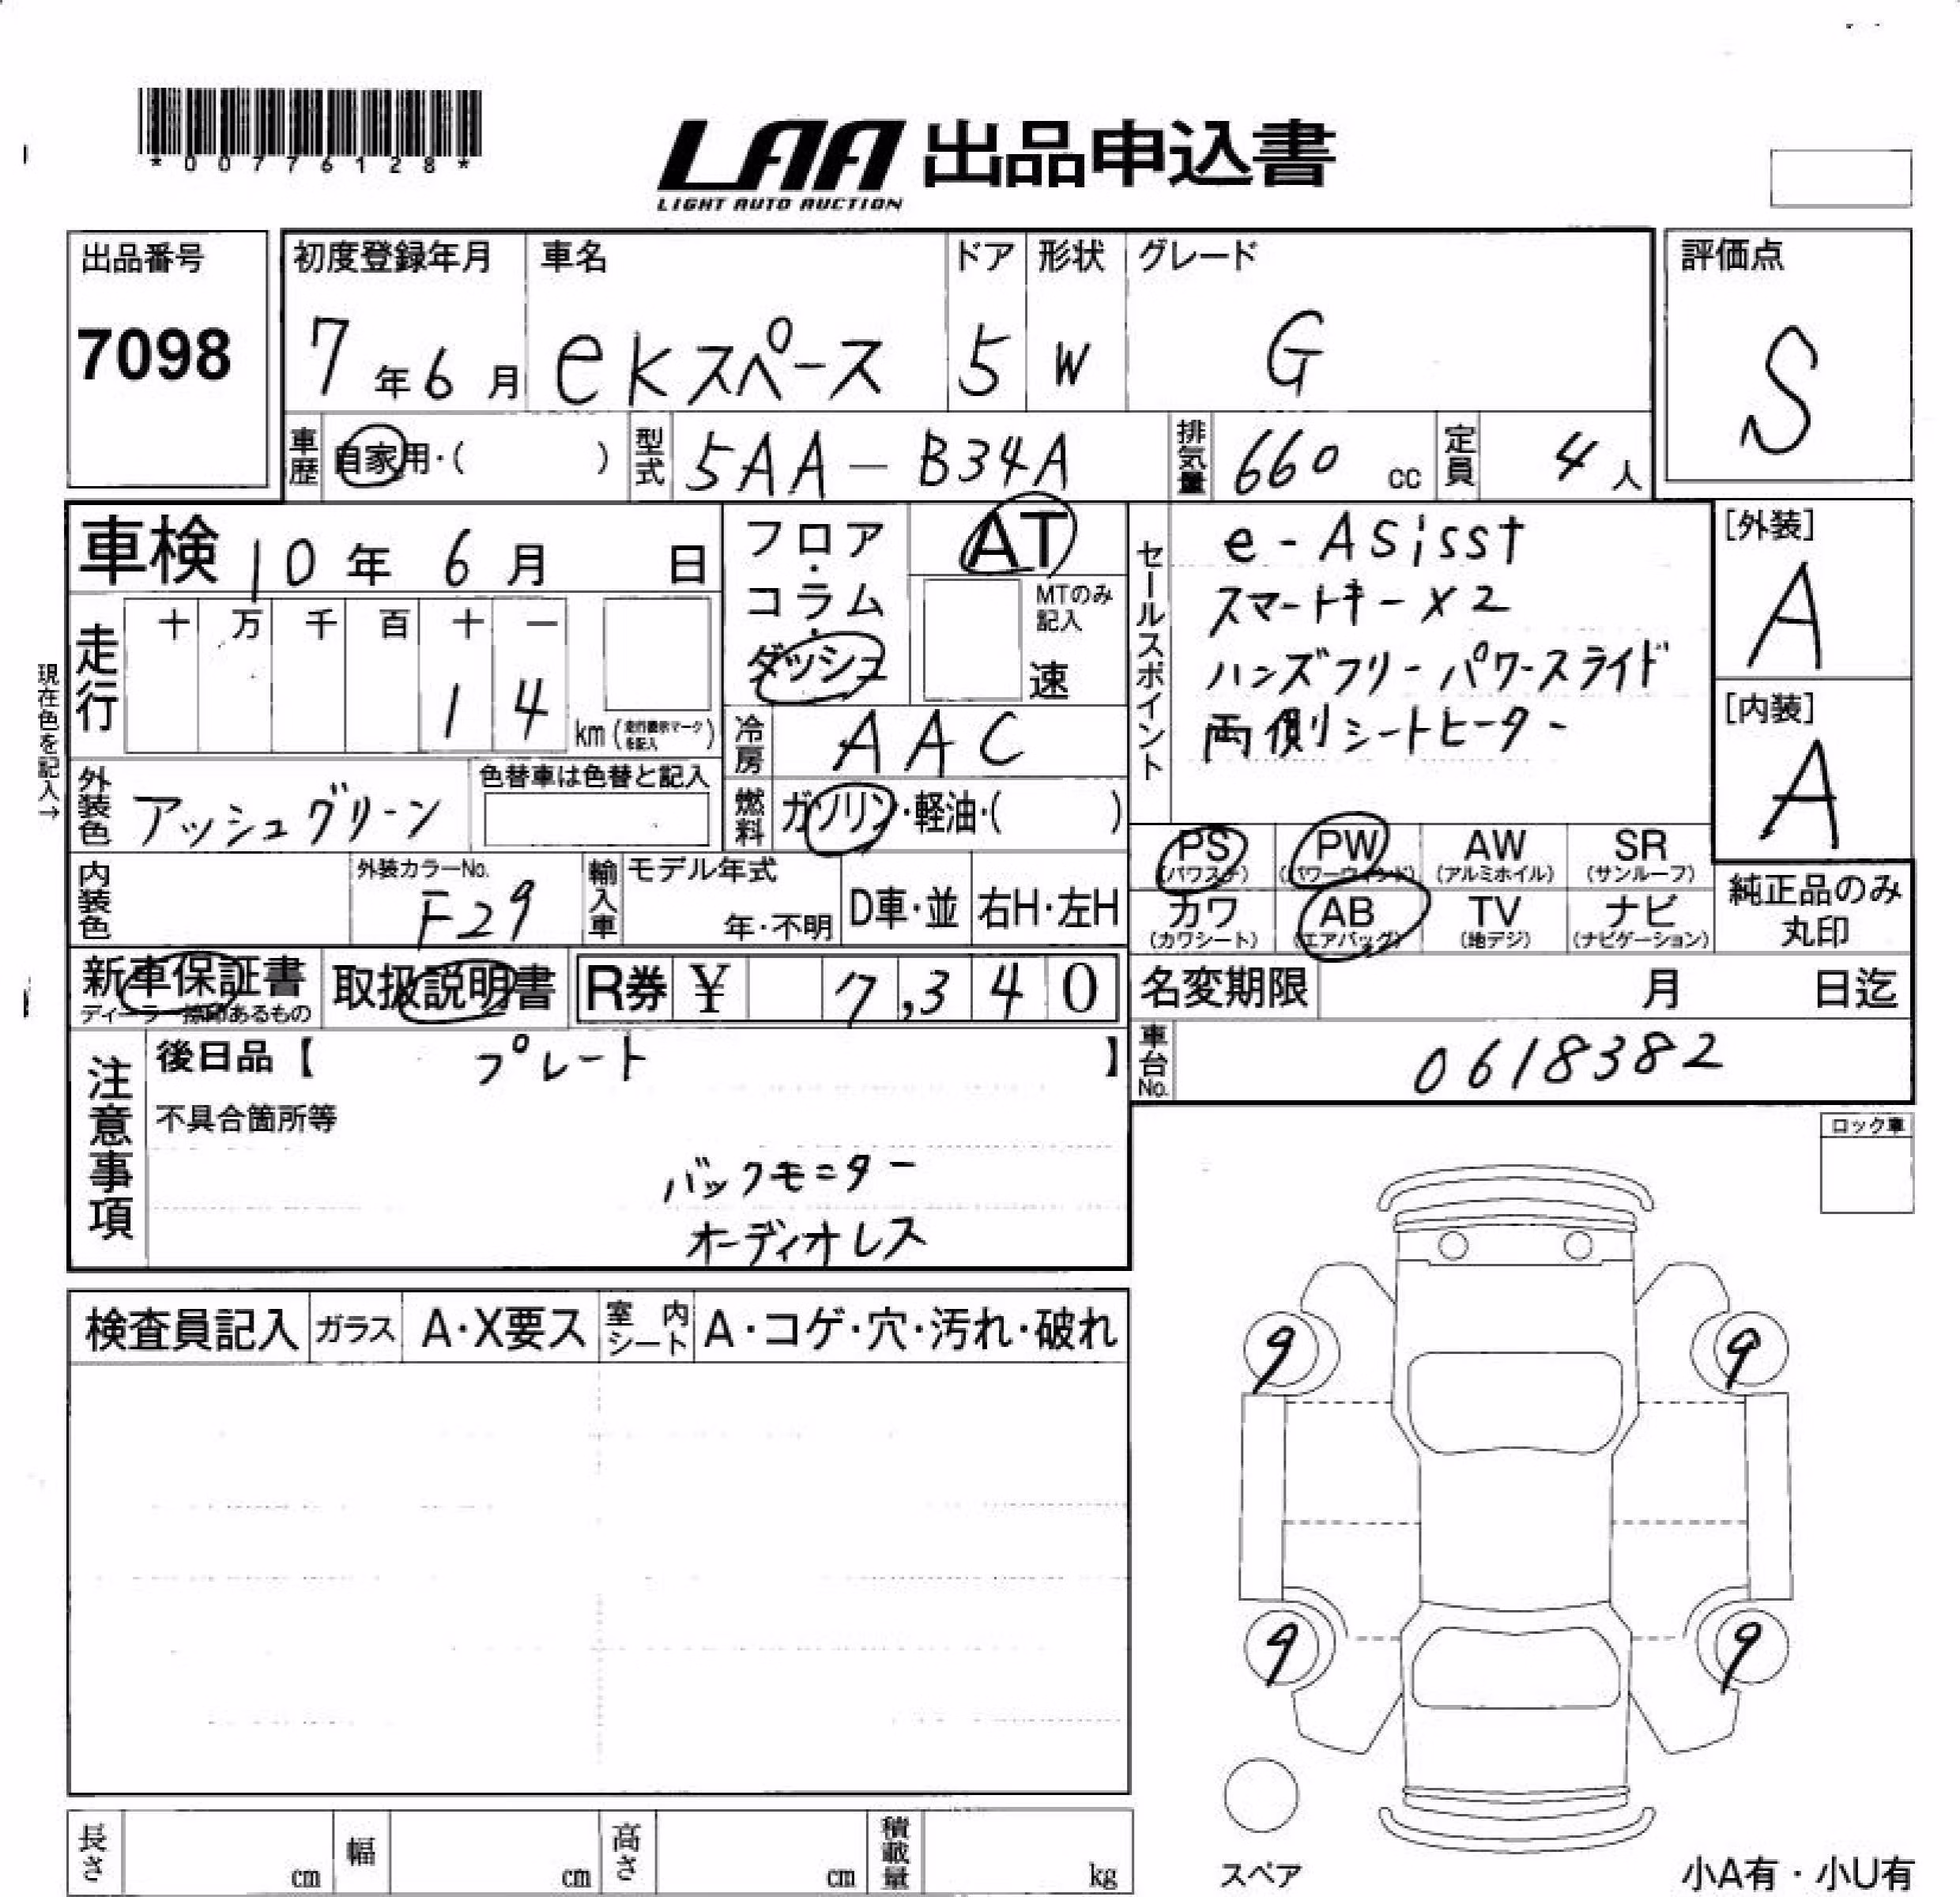 *00776128*
LAA 出品申込書
LIGHT AUTO AUCTION
出品番号
7098
初度登録年月
7年6月
車名
ekスペース
ドア
5
形状
W
グレード
G
評価点
S
車歴
自家用・( )
型式
5AA-B34A
排気量
660 cc
定員
4人
車検 10年 6月 日
走行
十 万 千 百 十 一
1 4
km(走行表示マークを記入)
現在色を記入→
フロア・コラム・ダッシュ
AT
MTのみ記入
速
冷房
AAC
燃料
ガソリン・軽油・( )
外装色
アッシュグリーン
色替車は色替と記入
内装色
外装カラーNo.
F29
輸入車
モデル年式
年・不明
D車・並
右H・左H
セールスポイント
e-ASisst
スマートキーX2
ハンズフリーパワースライド
両側シートヒーター
[外装]
A
[内装]
A
PS
(パワステ)
PW
(パワーウィンド)
AW
(アルミホイル)
SR
(サンルーフ)
カワ
(カワシート)
AB
(エアバッグ)
TV
(地デジ)
ナビ
(ナビゲーション)
純正品のみ
丸印
新車保証書
ディーラー捺印あるもの
取扱説明書
R券 ¥ 7,340
名変期限 月 日迄
車台No.
0618382
注意事項
後日品【 プレート 】
不具合箇所等
バックモニター
オーディオレス
ロック車
検査員記入
ガラス
A・X要ス
室内シート
A・コゲ・穴・汚れ・破れ
9
9
9
9
スペア
長さ cm
幅 cm
高さ cm
積載量 kg
小A有・小U有